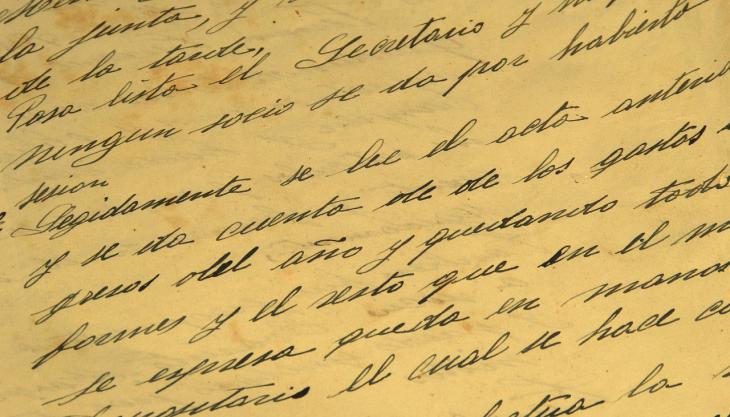 la junta, y
de la tarde,
Pasa lista el Secretario y no
ningun socio se da por habierto
sesion
Segidamente se lee el acta anteri
y se da cuenta de de los gastos
gresos del año y quedando todo
formes y el resto que en el m
se expresa queda en manos
el cual se hace ca
la